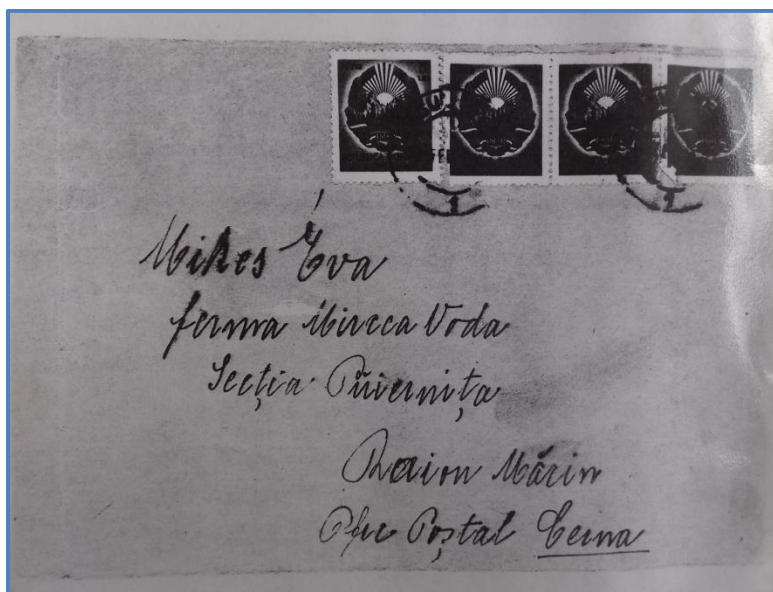 Mikes Éva
ferma Mircea Voda
Secția Puiernița
Raion Măcin
Ofic Poștal Cerna